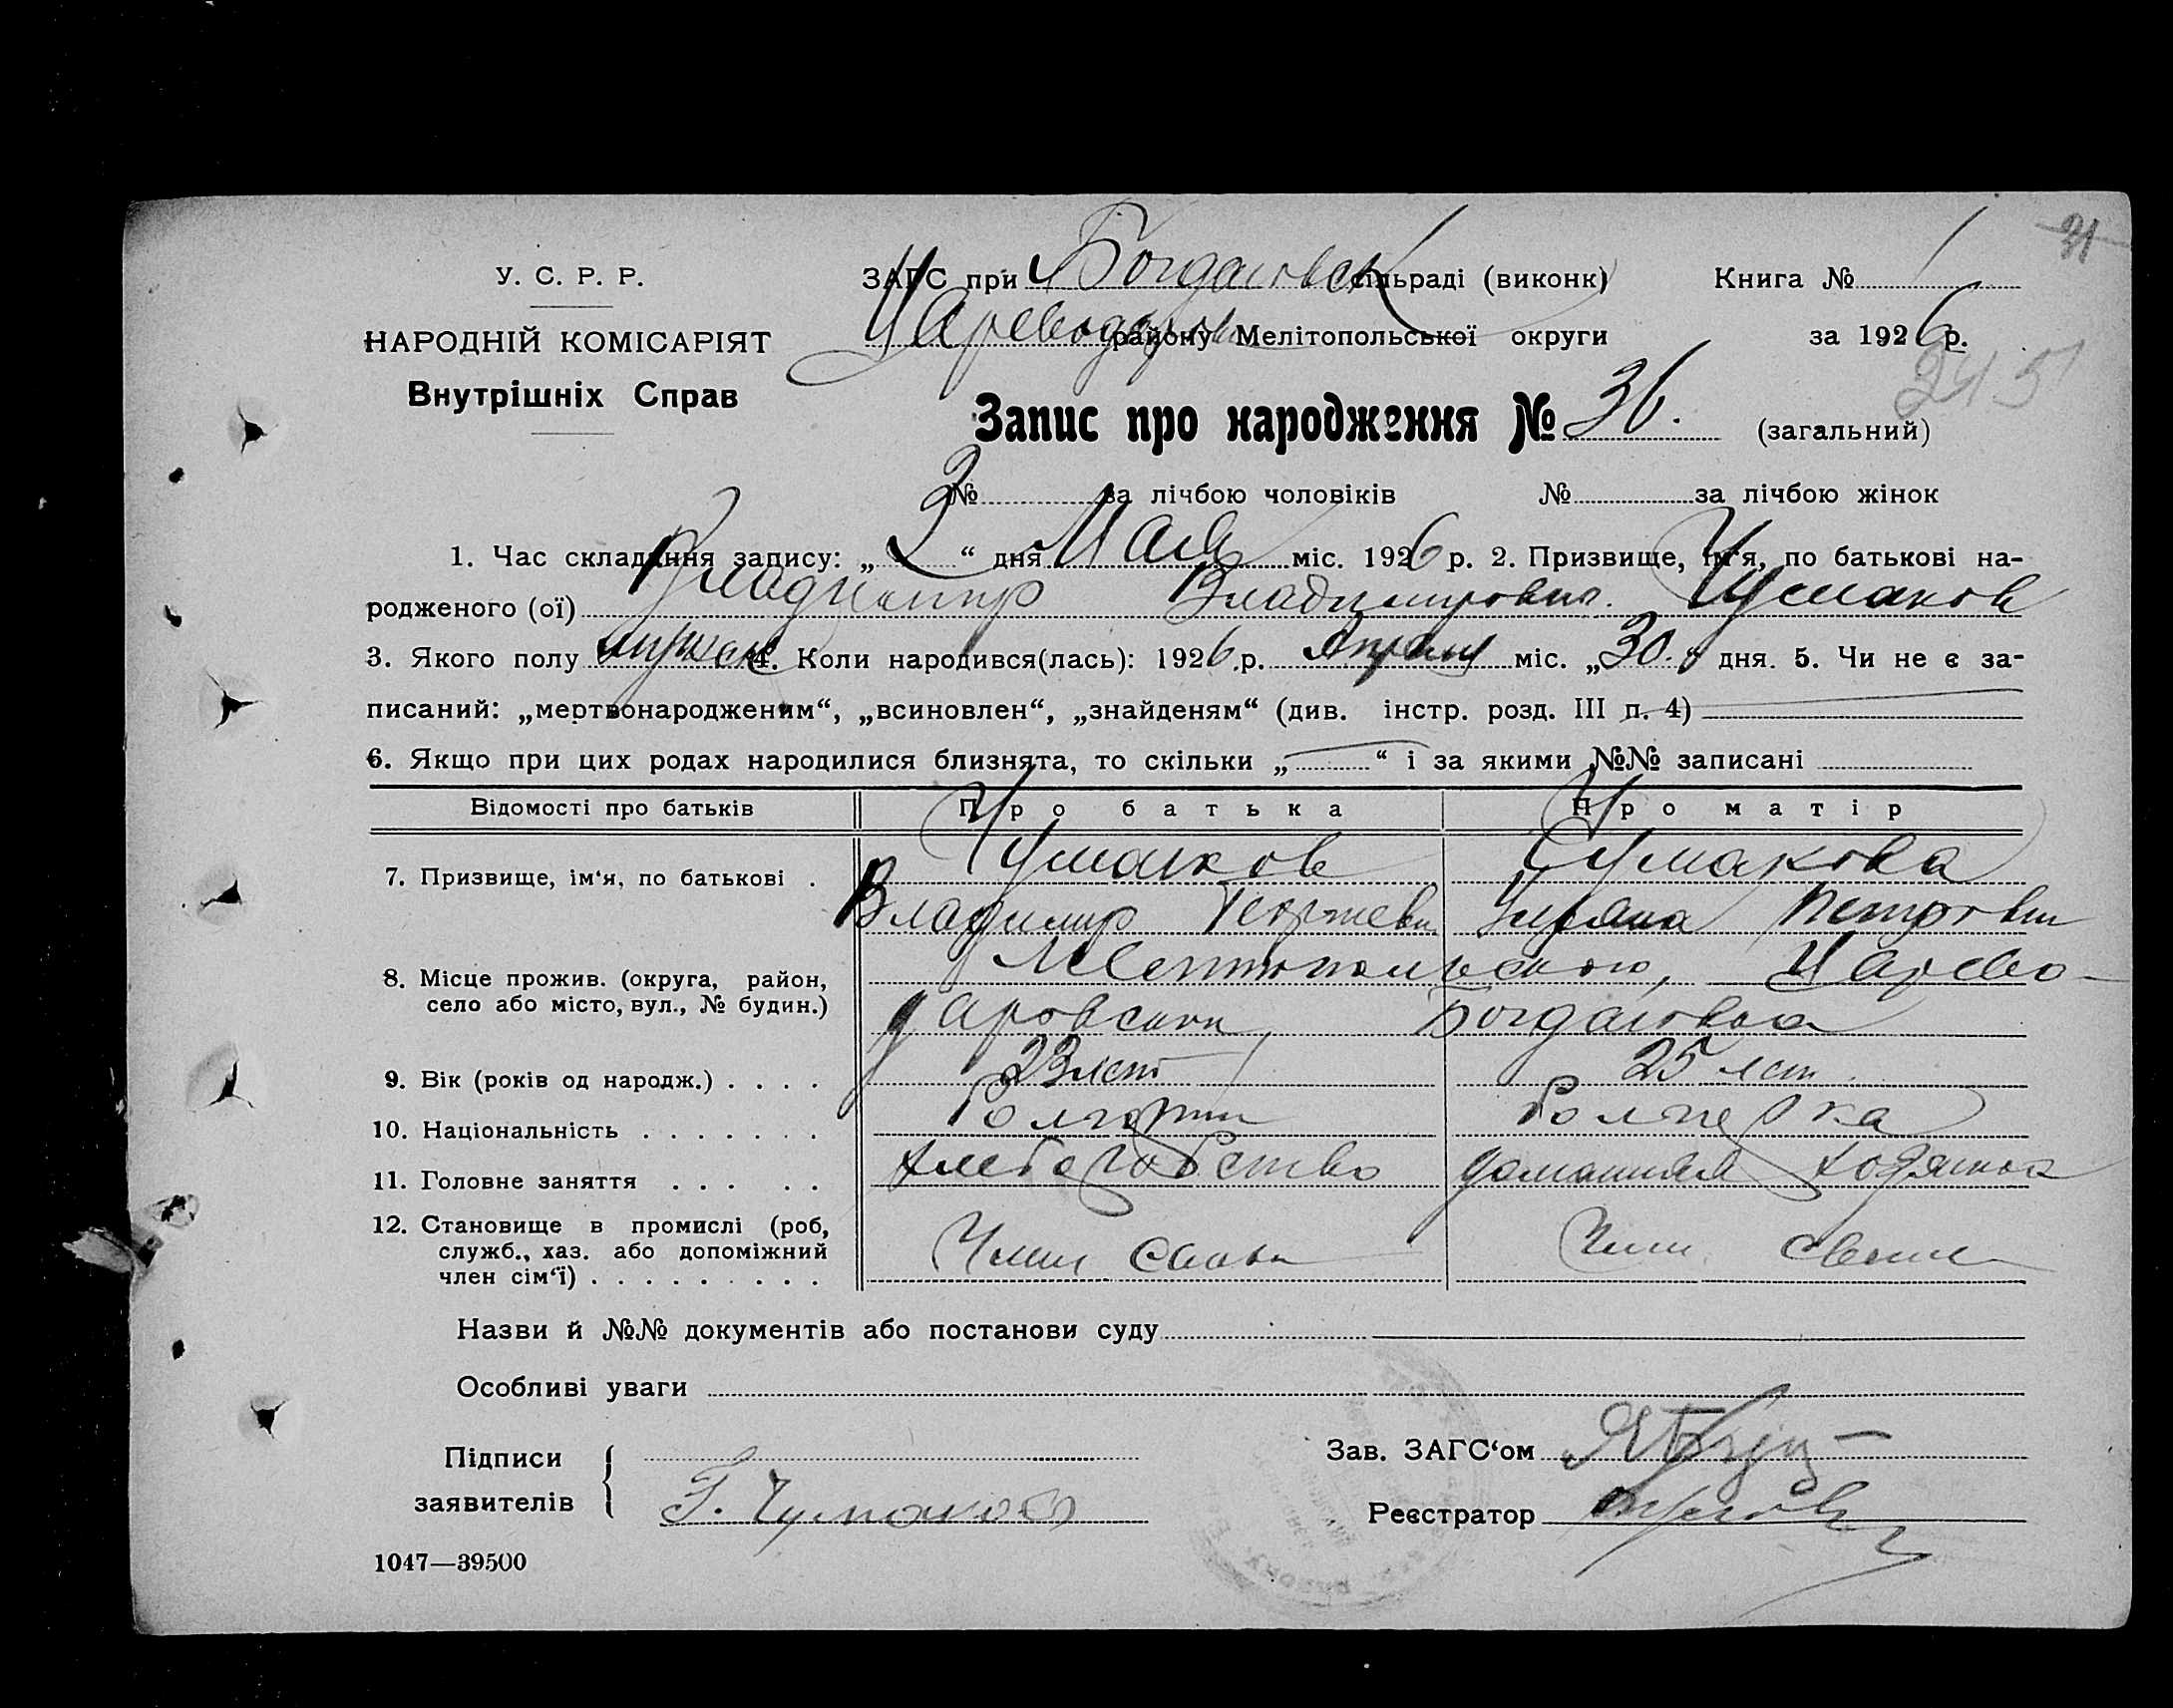 31
У. С. Р. Р. ЗАГС при Богдановск сільраді (виконк) Книга № 1
НАРОДНІЙ КОМІСАРІЯТ Царевода району Мелітопольської округи за 1926 р.
Внутрішніх Справ 245
Запис про народження № 36. (загальний)
№ за лічбою чоловіків № за лічбою жінок
1. Час складання запису: „ 3 “ дня Мая міс. 1926 р. 2. Призвище, ім‘я, по батькові на-
родженого (ої) Владимир Владимирович. Чумаков
3. Якого полу мужск 4. Коли народився(лась): 1926 р. Апреля міс. „ 30. “ дня. 5. Чи не є за-
писаний: „мертвонародженим“, „всиновлен“, „знайденям“ (див. інстр. розд. III п. 4)
6. Якщо при цих родах народилися близнята, то скільки „ “ і за якими №№ записані
Відомості про батьків Про батька Про матір
7. Призвище, ім‘я, по батькові . Чумаков Чумакова
Владимир Георгиеви Петровн
8. Місце прожив. (округа, район, Мелитопольского, Царево-
село або місто, вул., № будин.) даровский, Богдановка
9. Вік (років од народж.) . . . . 23 лет 25 лет
10. Національність . . . . . . . Болгарин Болгерка
11. Головне заняття . . . . . Хлебопабство домашняя хозяика
12. Становище в промислі (роб,
служб., хаз. або допоміжний Член Член
член сім‘ї) . . . . . . . . .
Назви й №№ документів або постанови суду
Особливі уваги
Підписи Зав. ЗАГС‘ом
заявителів Г. Чумаков Реєстратор
1047—39500